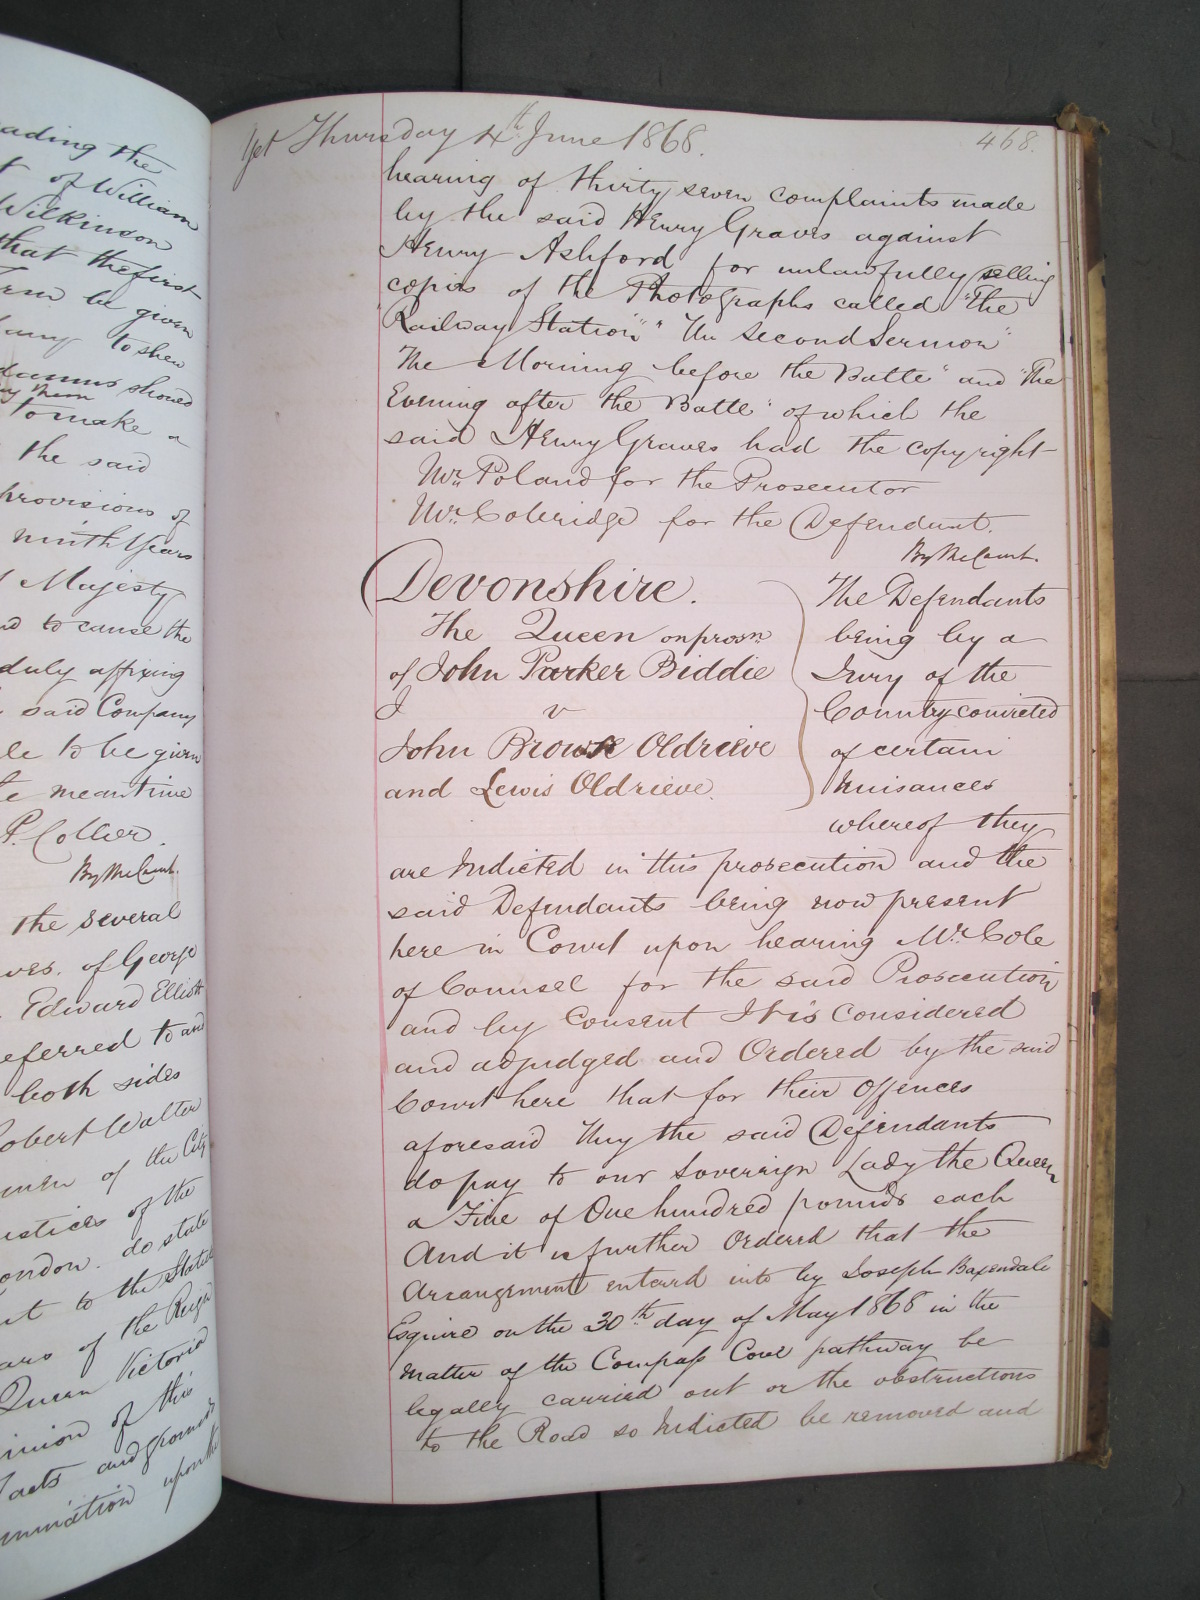 ading the
t of William
Wilkinson
that the first
Term be given
any to shew
damus should
them
to make a
the said
provisions of
ninth Years
Majesty
nd to cause the
duly affixing
said Company
le to be given
e meantime
P. Collier.
By the Court.
the several
ves. of George
Edward Elliott
eferred to and
both sides
Robert Walter
men of the City
ustices of the
London. do state
nt to the Statute
ars of the Reign
Queen Victoria
inion of this
facts and grounds
mination upon the
Yet Thursday 4th. June 1868.
468.
hearing of thirty seven complaints made
by the said Henry Graves against
Henry Ashford for unlawfully selling
copies of the Photographs called "The
Railway Station" "The Second Sermon"
The Morning before the Battle" and "The
Evening after the Battle" of which the
said Henry Graves had the copyright
Mr. Poland for the Prosecutor
Mr. Coleridge for the Defendant.
By the Court.
Devonshire.
The Queen on prosn.
of John Parker Biddle
v
John Browse Oldrieve
and Lewis Oldrieve.
The Defendants
being by a
Jury of the
Country convicted
of certain
Nuisances
whereof they
are Indicted in this prosecution and the
said Defendants being now present
here in Court upon hearing Mr. Cole
of Counsel for the said Prosecution
and by Consent It is Considered
and adjudged and Ordered by the said
Court here that for their Offences
aforesaid they the said Defendants
do pay to our Sovereign Lady the Queen
a Fine of One hundred pounds each
And it is further Ordered that the
Arrangement entered into by Joseph Baxendale
Esquire on the 30th. day of May 1868 in the
matter of the Compass Cove pathway be
legally carried out or the obstructions
to the Road so Indicted be removed and